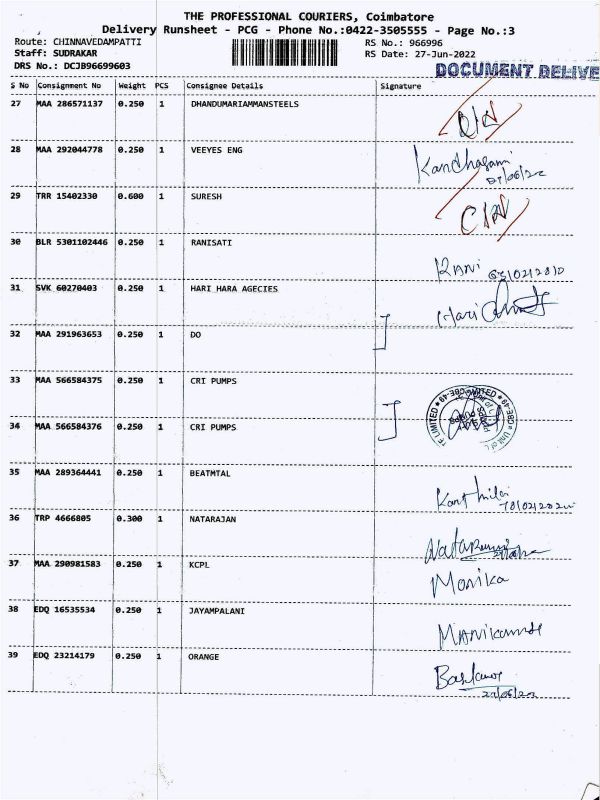 THE PROFESSIONAL COURIERS, Coimbatore
Delivery Runsheet - PCG - Phone No.:0422-3505555 - Page No.:3
Route: CHINNAVEDAMPATTI RS No.: 966996
Staff: SUDRAKAR RS Date: 27-Jun-2022
DRS No.: DCJB96699603 DOCUMENT DELIVE
S No Consignment No Weight PCS Consignee Details Signature
27 MAA 286571137 0.250 1 DHANDUMARIAMMANSTEELS
28 MAA 292044778 0.250 1 VEEYES ENG Kandhasami
29 TRR 15402330 0.600 1 SURESH
30 BLR 5301102446 0.250 1 RANISATI RANI
31 SVK 60270403 0.250 1 HARI HARA AGECIES Hari
32 MAA 291963653 0.250 1 DO
33 MAA 566584375 0.250 1 CRI PUMPS
34 MAA 566584376 0.250 1 CRI PUMPS
35 MAA 289364441 0.250 1 BEATMTAL
36 TRP 4666805 0.300 1 NATARAJAN
37 MAA 290981583 0.250 1 KCPL Monika
38 EDQ 16535534 0.250 1 JAYAMPALANI
39 EDQ 23214179 0.250 1 ORANGE